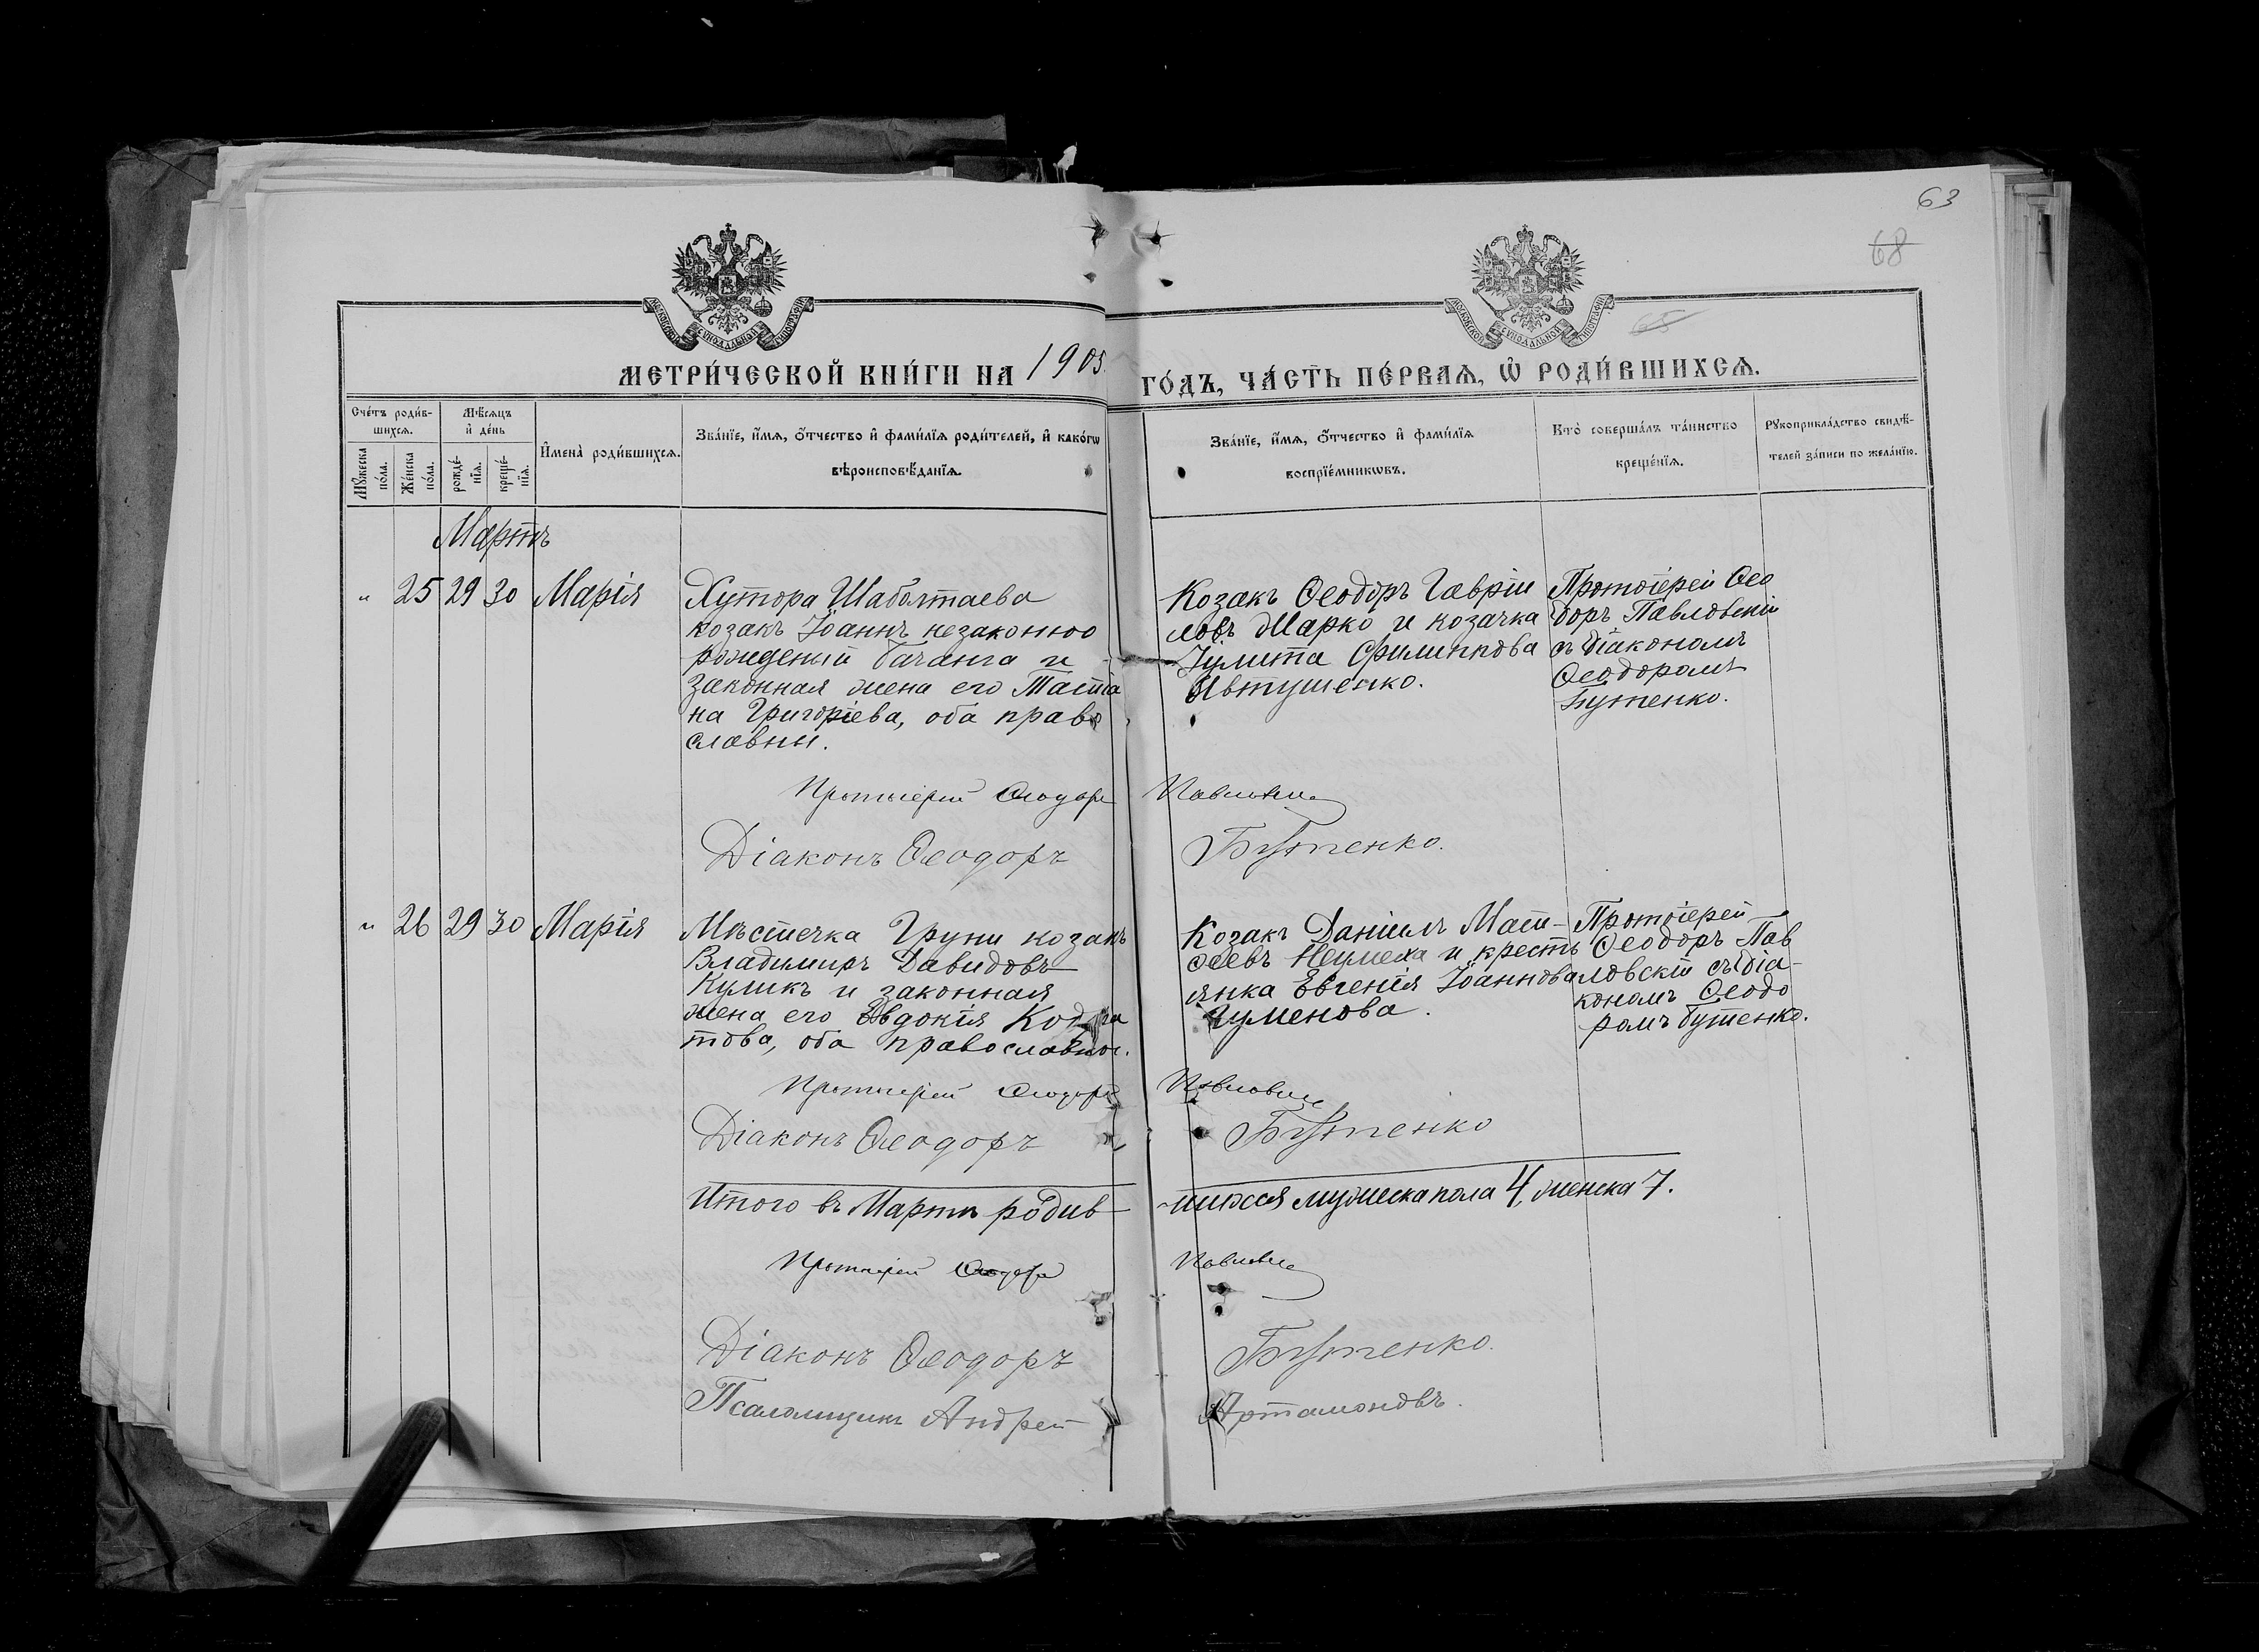 63
68
65
МОСКОВСКОЙ СѴНОДАЛЬНОЙ ТИПОГРАФІИ
МОСКОВСКОЙ СѴНОДАЛЬНОЙ ТИПОГРАФІИ
МЕТРИ́ЧЕСКОЙ КНИ́ГИ НА 1905
ГО́ДЪ, ЧА́СТЬ ПЕ́РВАѦ, Ѡ҆ РОДИ́ВШИХСѦ.
Сче́тъ роди́в-
шихсѧ.
Мꙋ́жеска
по́ла.
Же́нска
по́ла.
Мѣ́сѧцъ
и҆ де́нь
рожде́-
нїѧ.
креще́-
нїѧ.
И҆мена̀ роди́вшихсѧ.
Зва́нїе, и҆́мѧ, ѻ҆́тчество и҆ фами́лїѧ роди́телей, и҆ како́гѡ
вѣроисповѣ́данїѧ.
Зва́нїе, и҆́мѧ, ѻ҆́тчество и҆ фами́лїѧ
воспрїе́мникѡвъ.
Кто̀ соверша́лъ та́инство
креще́нїѧ.
Рꙋкоприкла́дство свидѣ́-
телей за́писи по жела́нїю.
Мартъ
" 25 29 30 Марія
Хутора Шаболтаева
козакъ Іоаннъ незаконно
рожденный и
законная жена его Татіа
на Григоріева, оба право
славны.
Козакъ Ѳеодоръ Гавріи
ловъ Марко и козачка
Іулитта Филиппова
Явтушенко.
Протоіерей Ѳео
доръ Павловскій
съ діакономъ
Ѳеодоромъ
Бутенко.
Протоіерей Ѳеодоръ Павловскій
Діаконъ Ѳеодоръ Бутенко.
" 26 29 30 Марія
Мѣстечка Груни козакъ
Владимиръ Давидовъ
Куликъ и законная
жена его Евдокія Кодра
това, оба православные.
Козакъ Даніилъ Мат-
ѳеевъ и кресть
янка Евгенія Іоаннова
Гуменова.
Протоіерей
Ѳеодоръ Пав
ловскій съ діа-
кономъ Ѳеодо
ромъ Бутенко.
Протоіерей Ѳеодоръ Павловскій
Діаконъ Ѳеодоръ Бутенко
Итого въ Мартѣ родив-
шихся мужеска пола 4, женска 7.
Протоіерей Ѳеодоръ Павловскій
Діаконъ Ѳеодоръ Бутенко.
Псаломщикъ Андрей Артамоновъ.